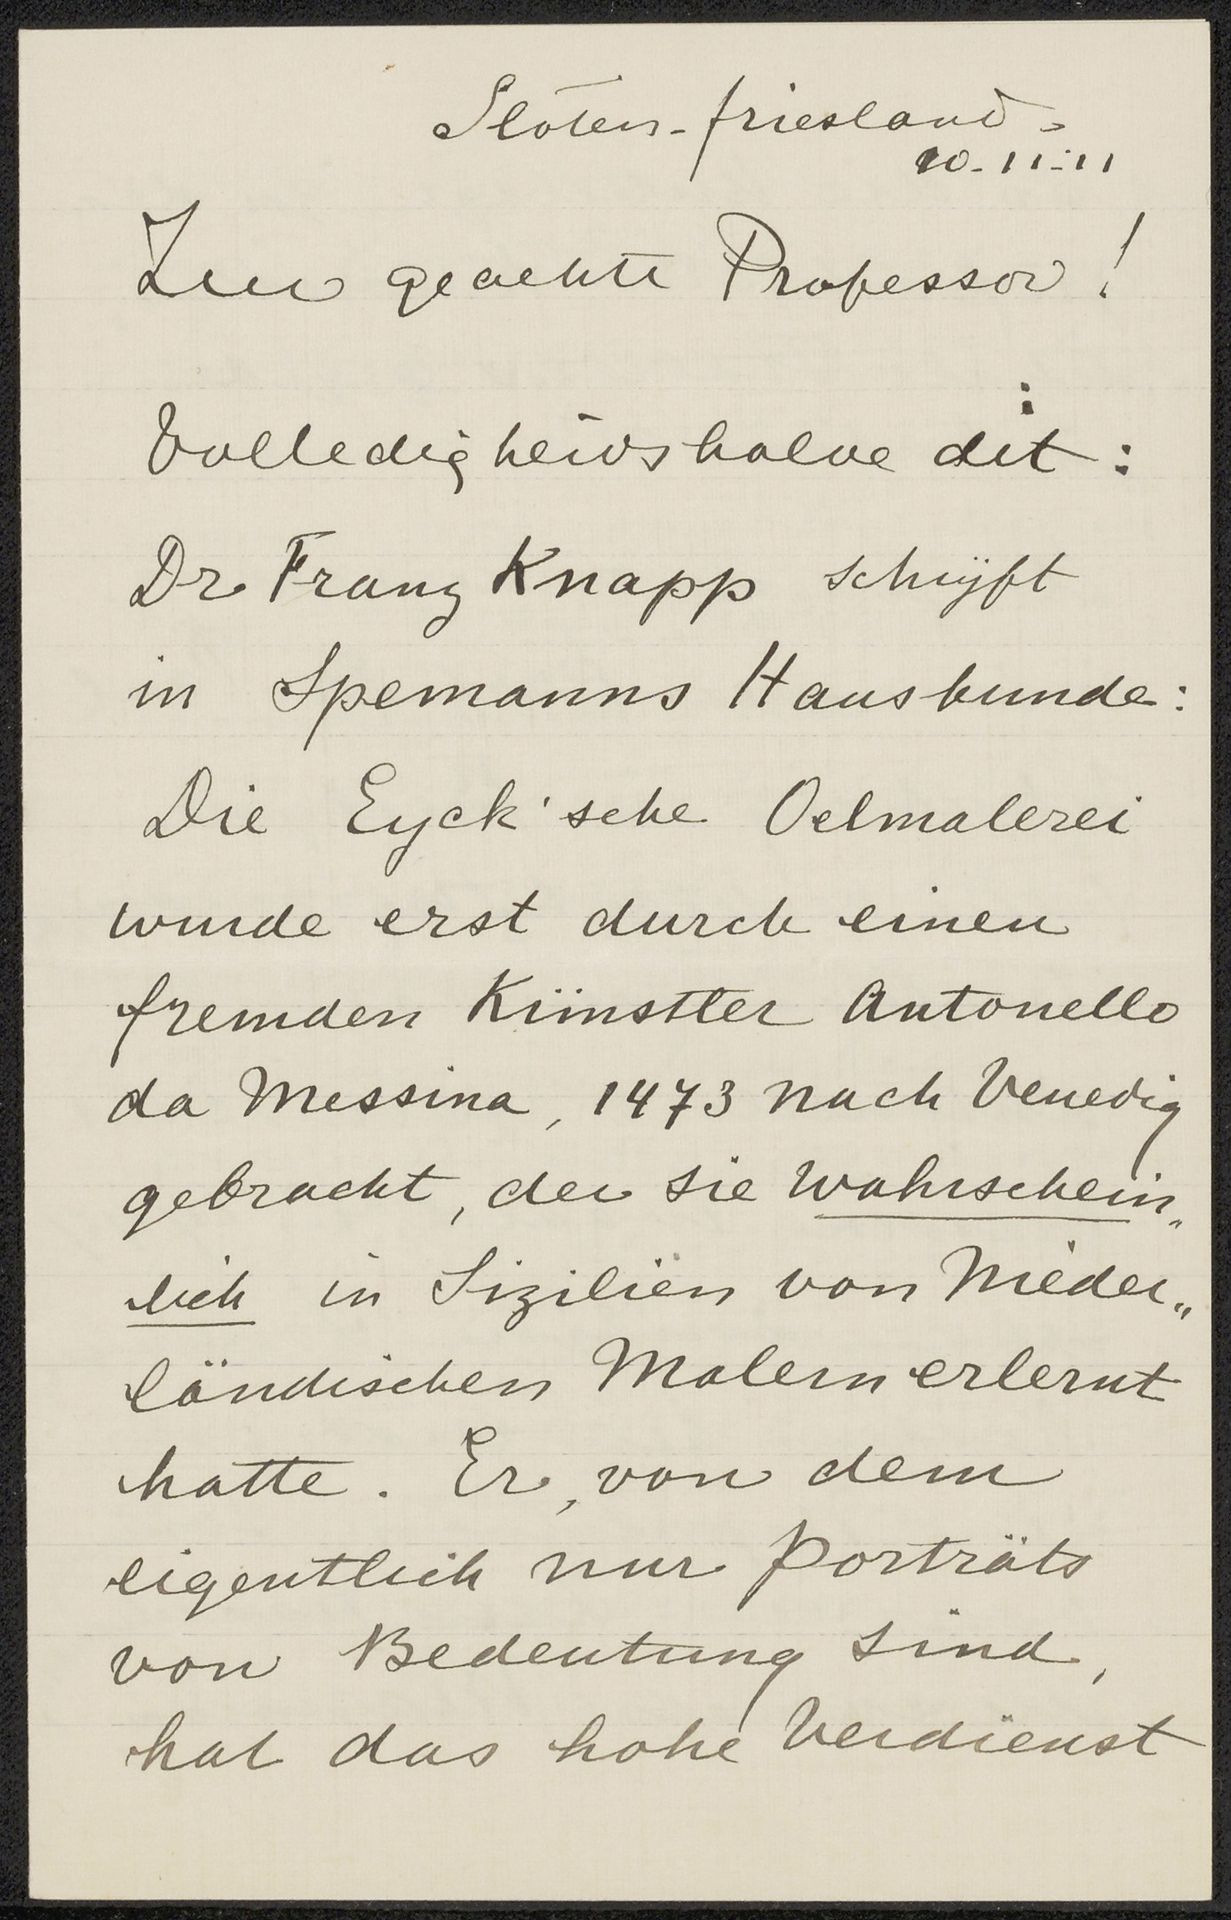 Sloten-friesland.
10-11-11
Zeer geachte Professor!
Volledigheidshalve dit:
Dr. Franz Knapp schrijft
in Spemanns Hauskunde:
Die Eyck'sche Oelmalerei
wurde erst durch einen
fremden Künstler Antonello
da Messina, 1473 nach Venedig
gebracht, der sie wahrschein„
lich in Sizilien von Nieder„
ländischen Malern erlernt
hatte. Er, von dem
eigentlich nur Porträts
von Bedeutung sind,
hat das hohe Verdienst